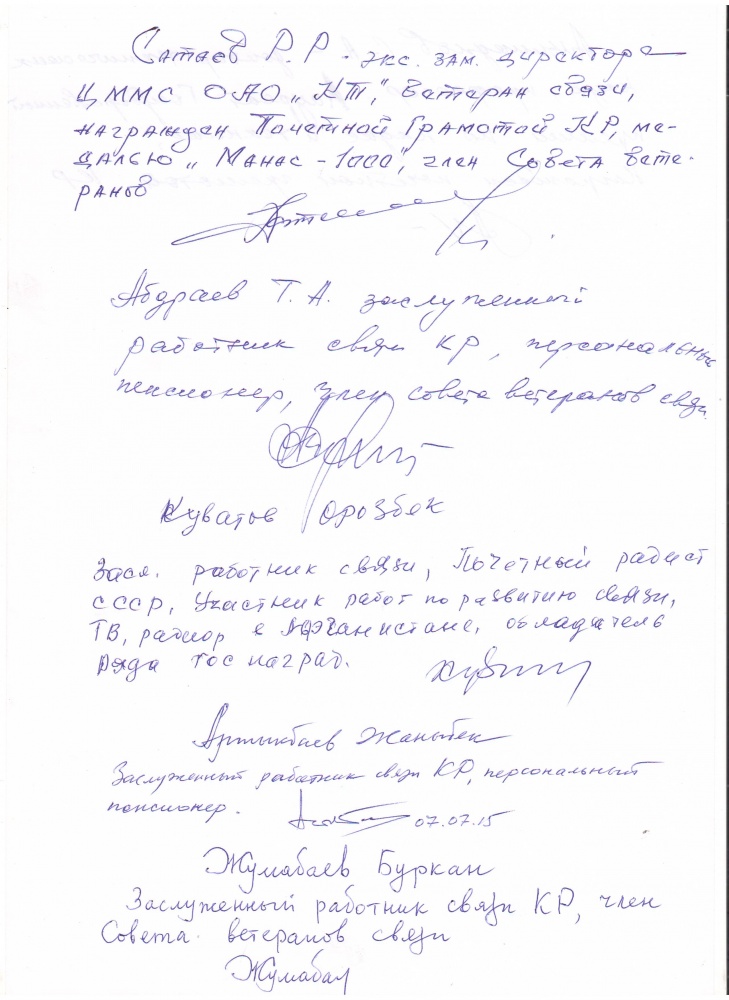 Сатаев Р.Р. - экс. зам. директора
ЦММС ОАО „КТ", Ветаран связи,
награждан Почетной Грамотой КР, ме-
далью „Манас - 1000", член Совета вете-
ранов
Абдраев Т.А. заслуженный
работник связи КР, персональный
пенсионер, член совета ветеранов связи.
Куватов Орозбек
Засл. работник связи, Почетный радист
СССР, Участник работ по развитию связи,
ТВ, радиор в Афганистане, обладатель
ряда гос наград.
Артыкбаев Жаныбек
Заслуженный работник связи КР, персональный
пенсионер. 07.07.15
Жумабаев Буркан
Заслуженный работник связи КР, член
Совета ветеранов связи
Жумабал